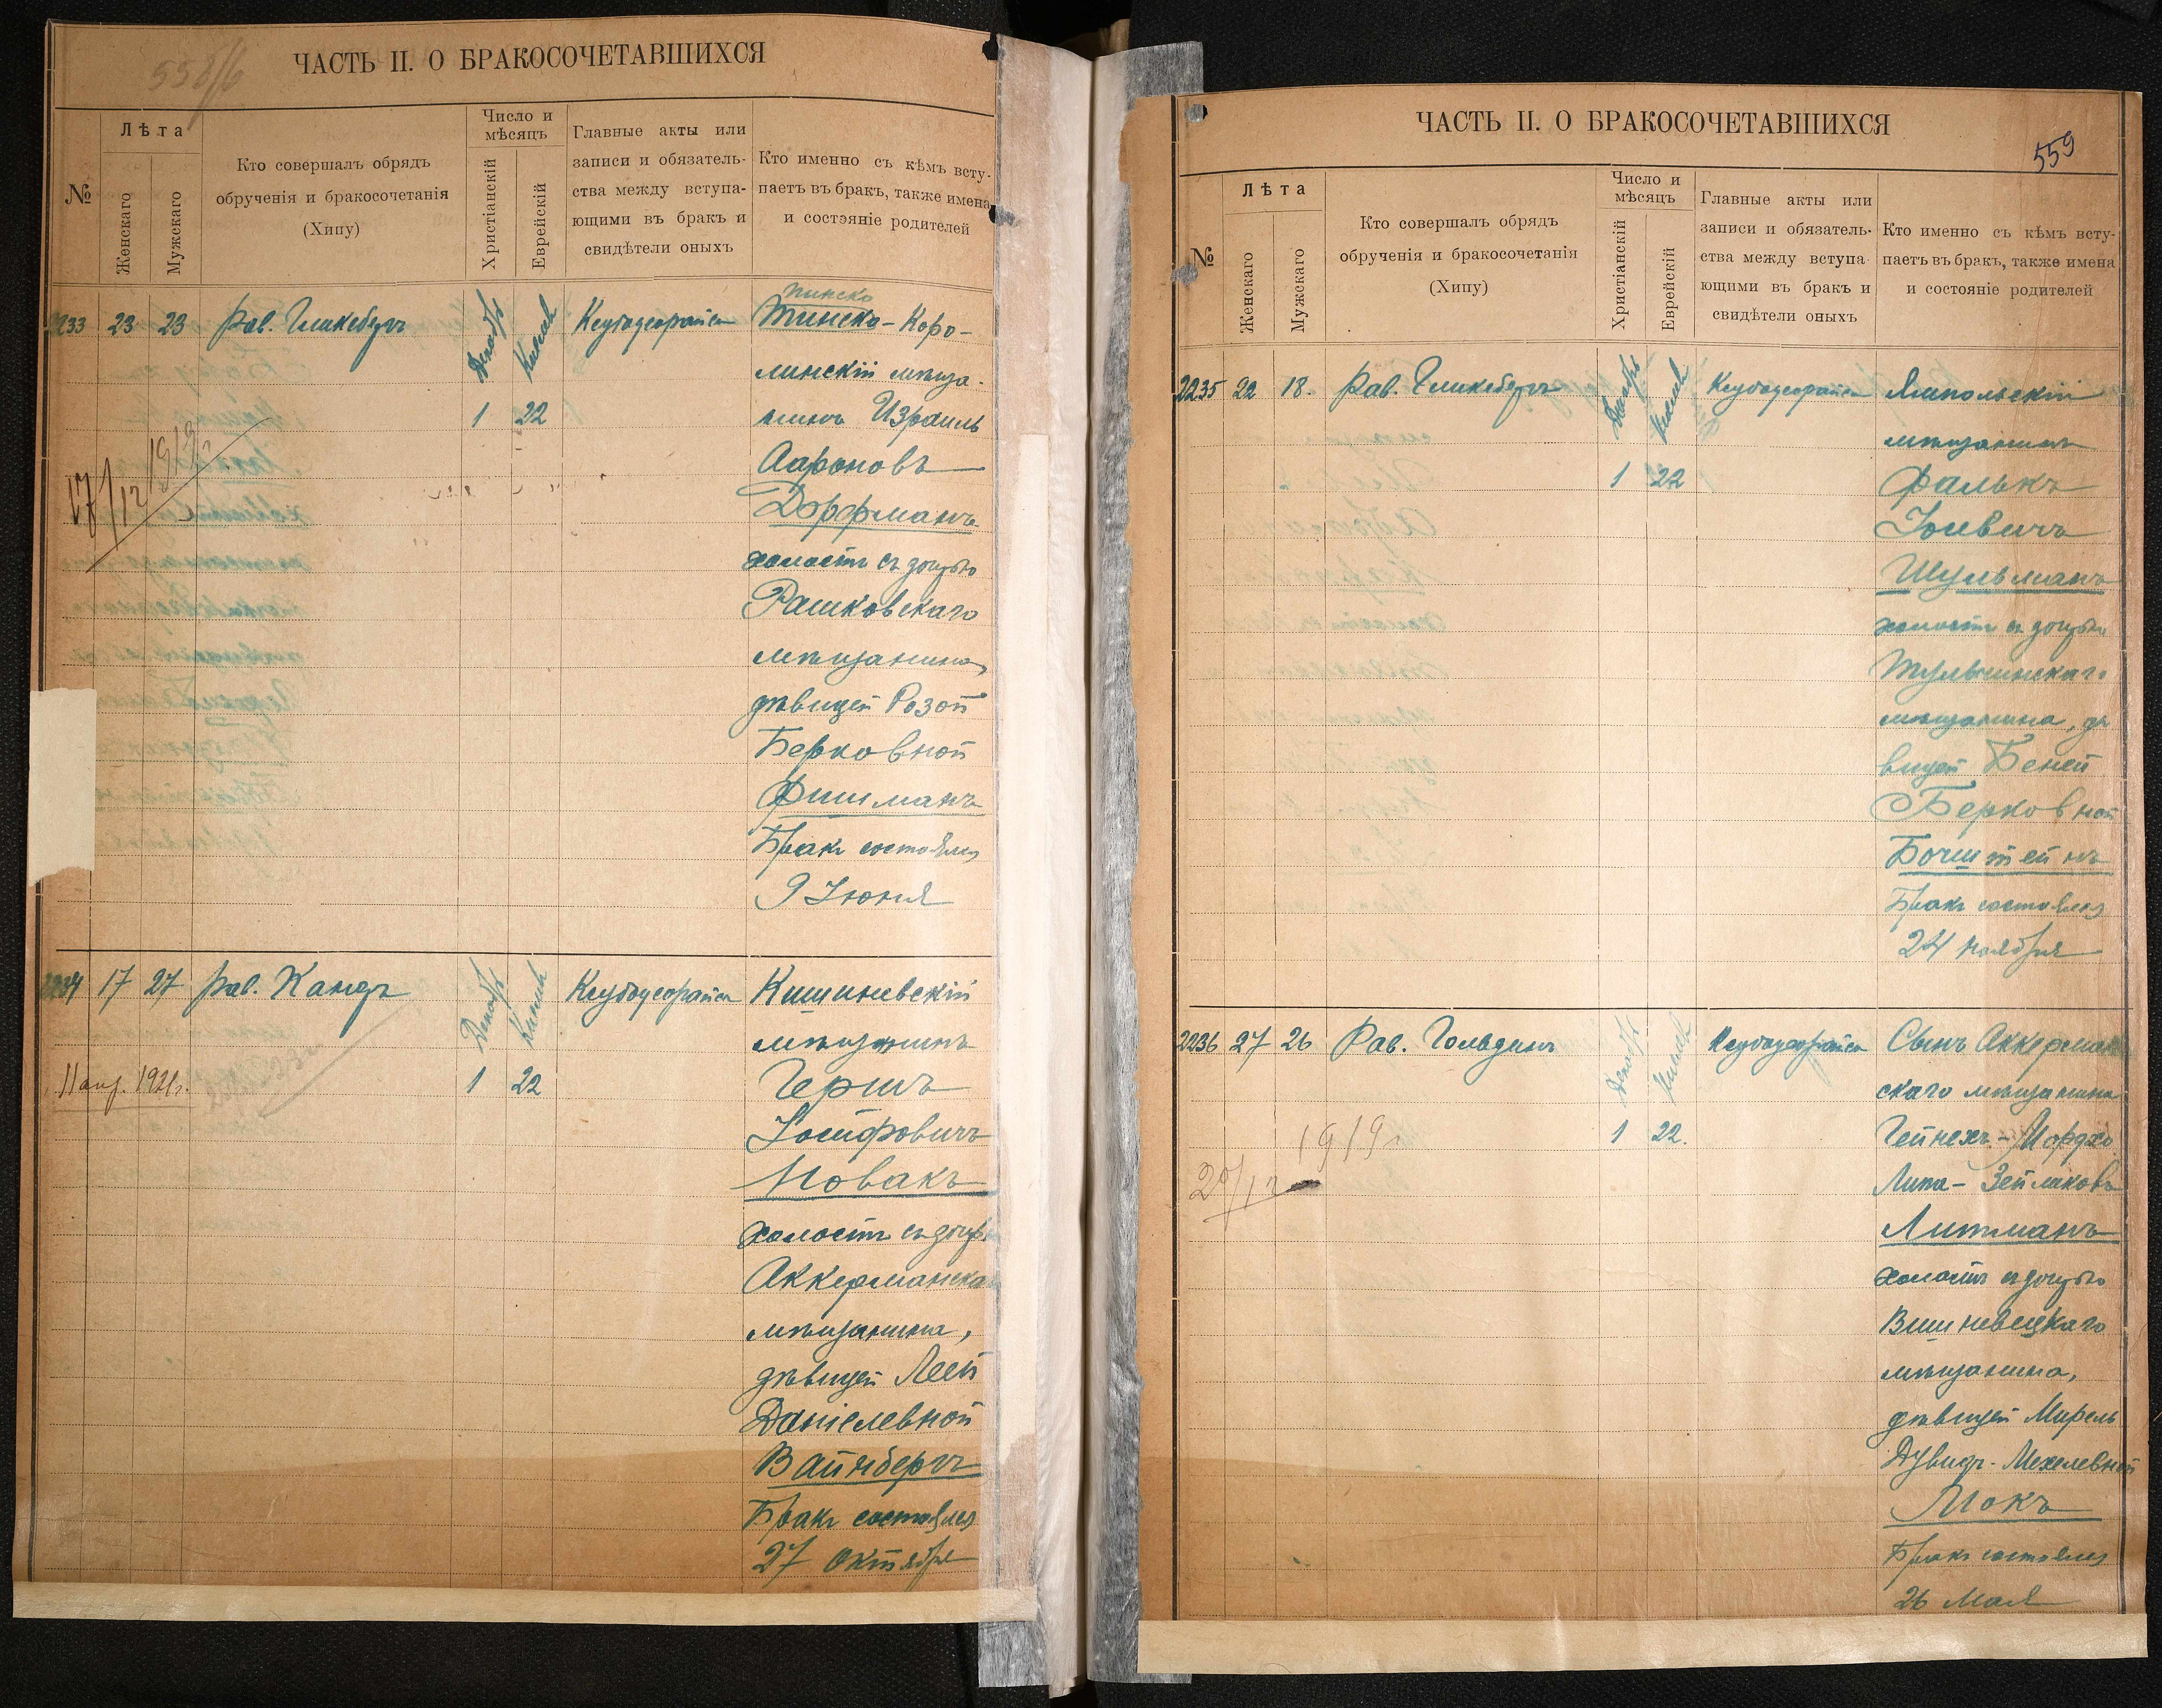 558/6
ЧАСТЬ II. О БРАКОСОЧЕТАВШИХСЯ
№
Лѣта
Женскаго
Мужскаго
Кто совершалъ обрядъ
обрученія и бракосочетанія
(Хипу)
Число и
мѣсяцъ
Христіанскій
Еврейскій
Главные акты или
записи и обязатель-
ства между вступа-
ющими въ бракъ и
свидѣтели оныхъ
Кто именно съ кѣмъ всту-
паетъ въ бракъ, также имена
и состэяніе родителей
2233 23 23 Рав. Гликсбергъ
Декабрь
Кислевъ
1 22
17/12 1919г
Пинско
Пинско-Каро-
линскій мѣща-
нинъ Израиль
Аароновъ
Дорфманъ
холостъ съ дочерью
Рашковскаго
мѣщанина,
дѣвицей Розой
Берковной
Фишманъ
Бракъ состоялся
9 Іюня
2234 17 27 Рав.
Декабрь
Кислевъ
1 22
11 1921г.
Кишиневскій
мѣщанинъ
Гершъ
Іосифовичъ
Новакъ
холостъ съ дочерью
Аккерманска
мѣщанина,
дѣвицей Леей
Даніелевной
Вайнбергъ
Бракъ состоялся
27 Октября
ЧАСТЬ II. О БРАКОСОЧЕТАВШИХСЯ
559
№
Лѣта
Женскаго
Мужскаго
Кто совершалъ обрядъ
обрученія и бракосочетанія
(Хипу)
Число и
мѣсяцъ
Христіанскій
Еврейскій
Главные акты или
записи и обязатель-
ства между вступа-
ющими въ бракъ и
свидѣтели оныхъ
Кто именно съ кѣмъ всту-
паетъ въ бракъ, также имена
и состояніе родителей
2235 22 18. Рав. Гликсбергъ
Декабрь
Кислевъ
1 22
Ямпольскій
мѣщанинъ
Фалькъ
Іоевичъ
Шульманъ
холостъ съ дочерью
Тульчинскаго
мѣщанина, дѣ
вицей Беней
Берковной
Бочштейнъ
Бракъ состоялся
24 ноября
2236 27 26 Рав. Гольдинъ
Декабрь
Кислевъ
1 22.
1919г
20/12
Сынъ Аккерман
скаго мѣщанина
Гейнехъ-Мордхо
Липа-Зейликовъ
Литманъ
холостъ съ дочерью
Вишневецкаго
мѣщанина,
дѣвицей Мирель
Дувидъ-Мехелевной
Мокъ
Бракъ состоялся
26 Мая